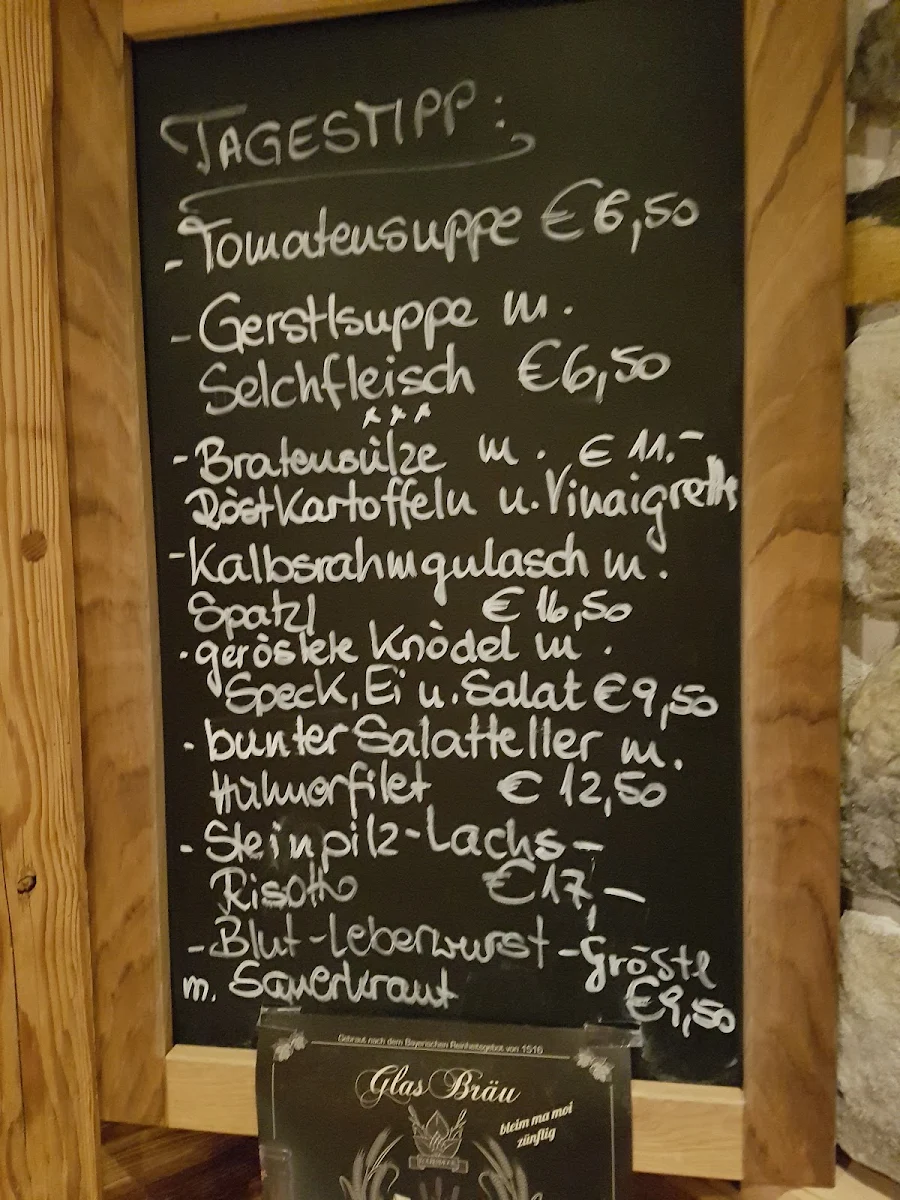 TAGESTIPP:
- Tomatensuppe €6,50
- Gerstlsuppe m.
Selchfleisch €6,50
***
- Bratensülze m. €11.-
Röstkartoffeln u. Vinaigrette
- Kalbsrahmgulasch m.
Spatzl €16,50
· geröstete Knödel m.
Speck, Ei u. Salat €9,50
· bunter Salatteller m.
Hühnerfilet € 12,50
- Steinpilz-Lachs-
Risotto €17,-
- Blut-Leberwurst-Gröstl
m. Sauerkraut €9,50
Gebraut nach dem Bayerischen Reinheitsgebot von 1516
Glas Bräu
bleim ma moi
zünftig